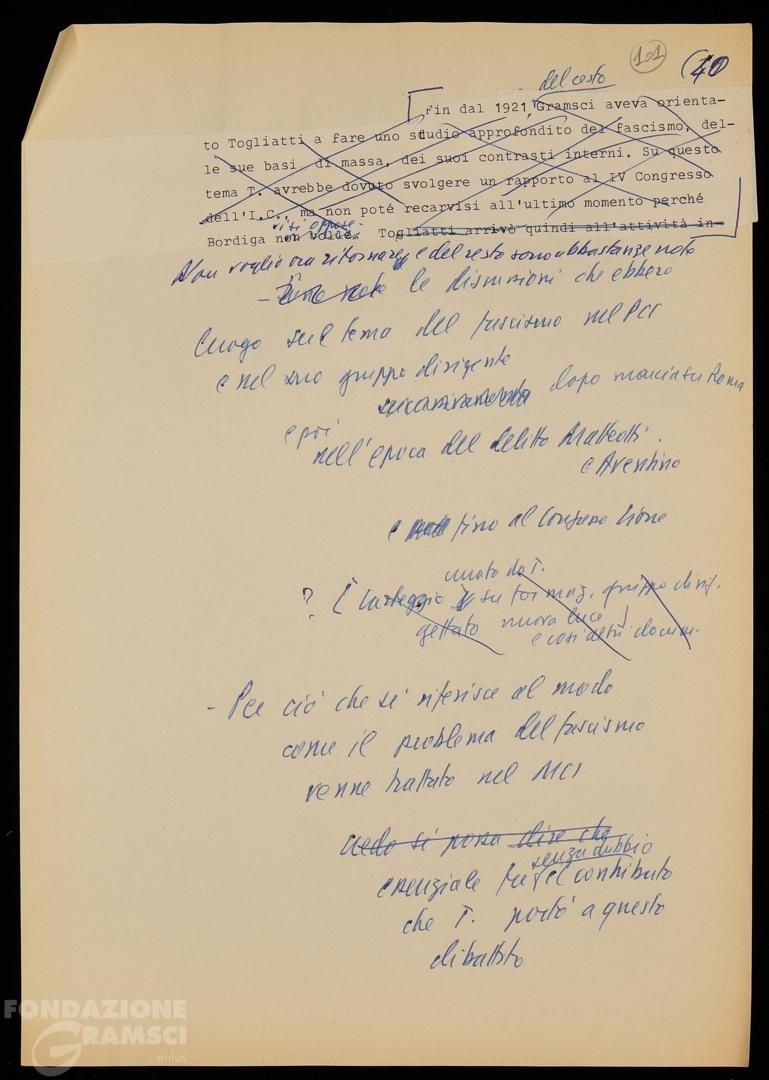 101
40
del resto
Fin dal 1921, Gramsci aveva orienta-
to Togliatti a fare uno studio approfondito del fascismo, del-
le sue basi di massa, dei suoi contrasti interni. Su questo
tema T. avrebbe dovuto svolgere un rapporto al IV Congresso
dell'I.C., ma non poté recarvisi all'ultimo momento perché
vi si oppose
Bordiga non volle. Togliatti arrivò quindi all'attività in-
Non voglio ora ritornare e del resto sono abbastanza note
- le discussioni che ebbero
luogo sul tema del fascismo nel PCI
e nel suo gruppo dirigente
dopo marcia su Roma
e poi
nell'epoca del delitto Matteotti
e Aventino
e fino al Congresso Lione
curato da T.
? Carteggio su formaz. gruppo dirig.
gettato nuova luce
e così altri docum.
- Per ciò che si riferisce al modo
come il problema del fascismo
venne trattato nel MCI
credo si possa dire che
senza dubbio
essenziale fu il contributo
che T. portò a questo
dibattito
FONDAZIONE
GRAMSCI
onlus